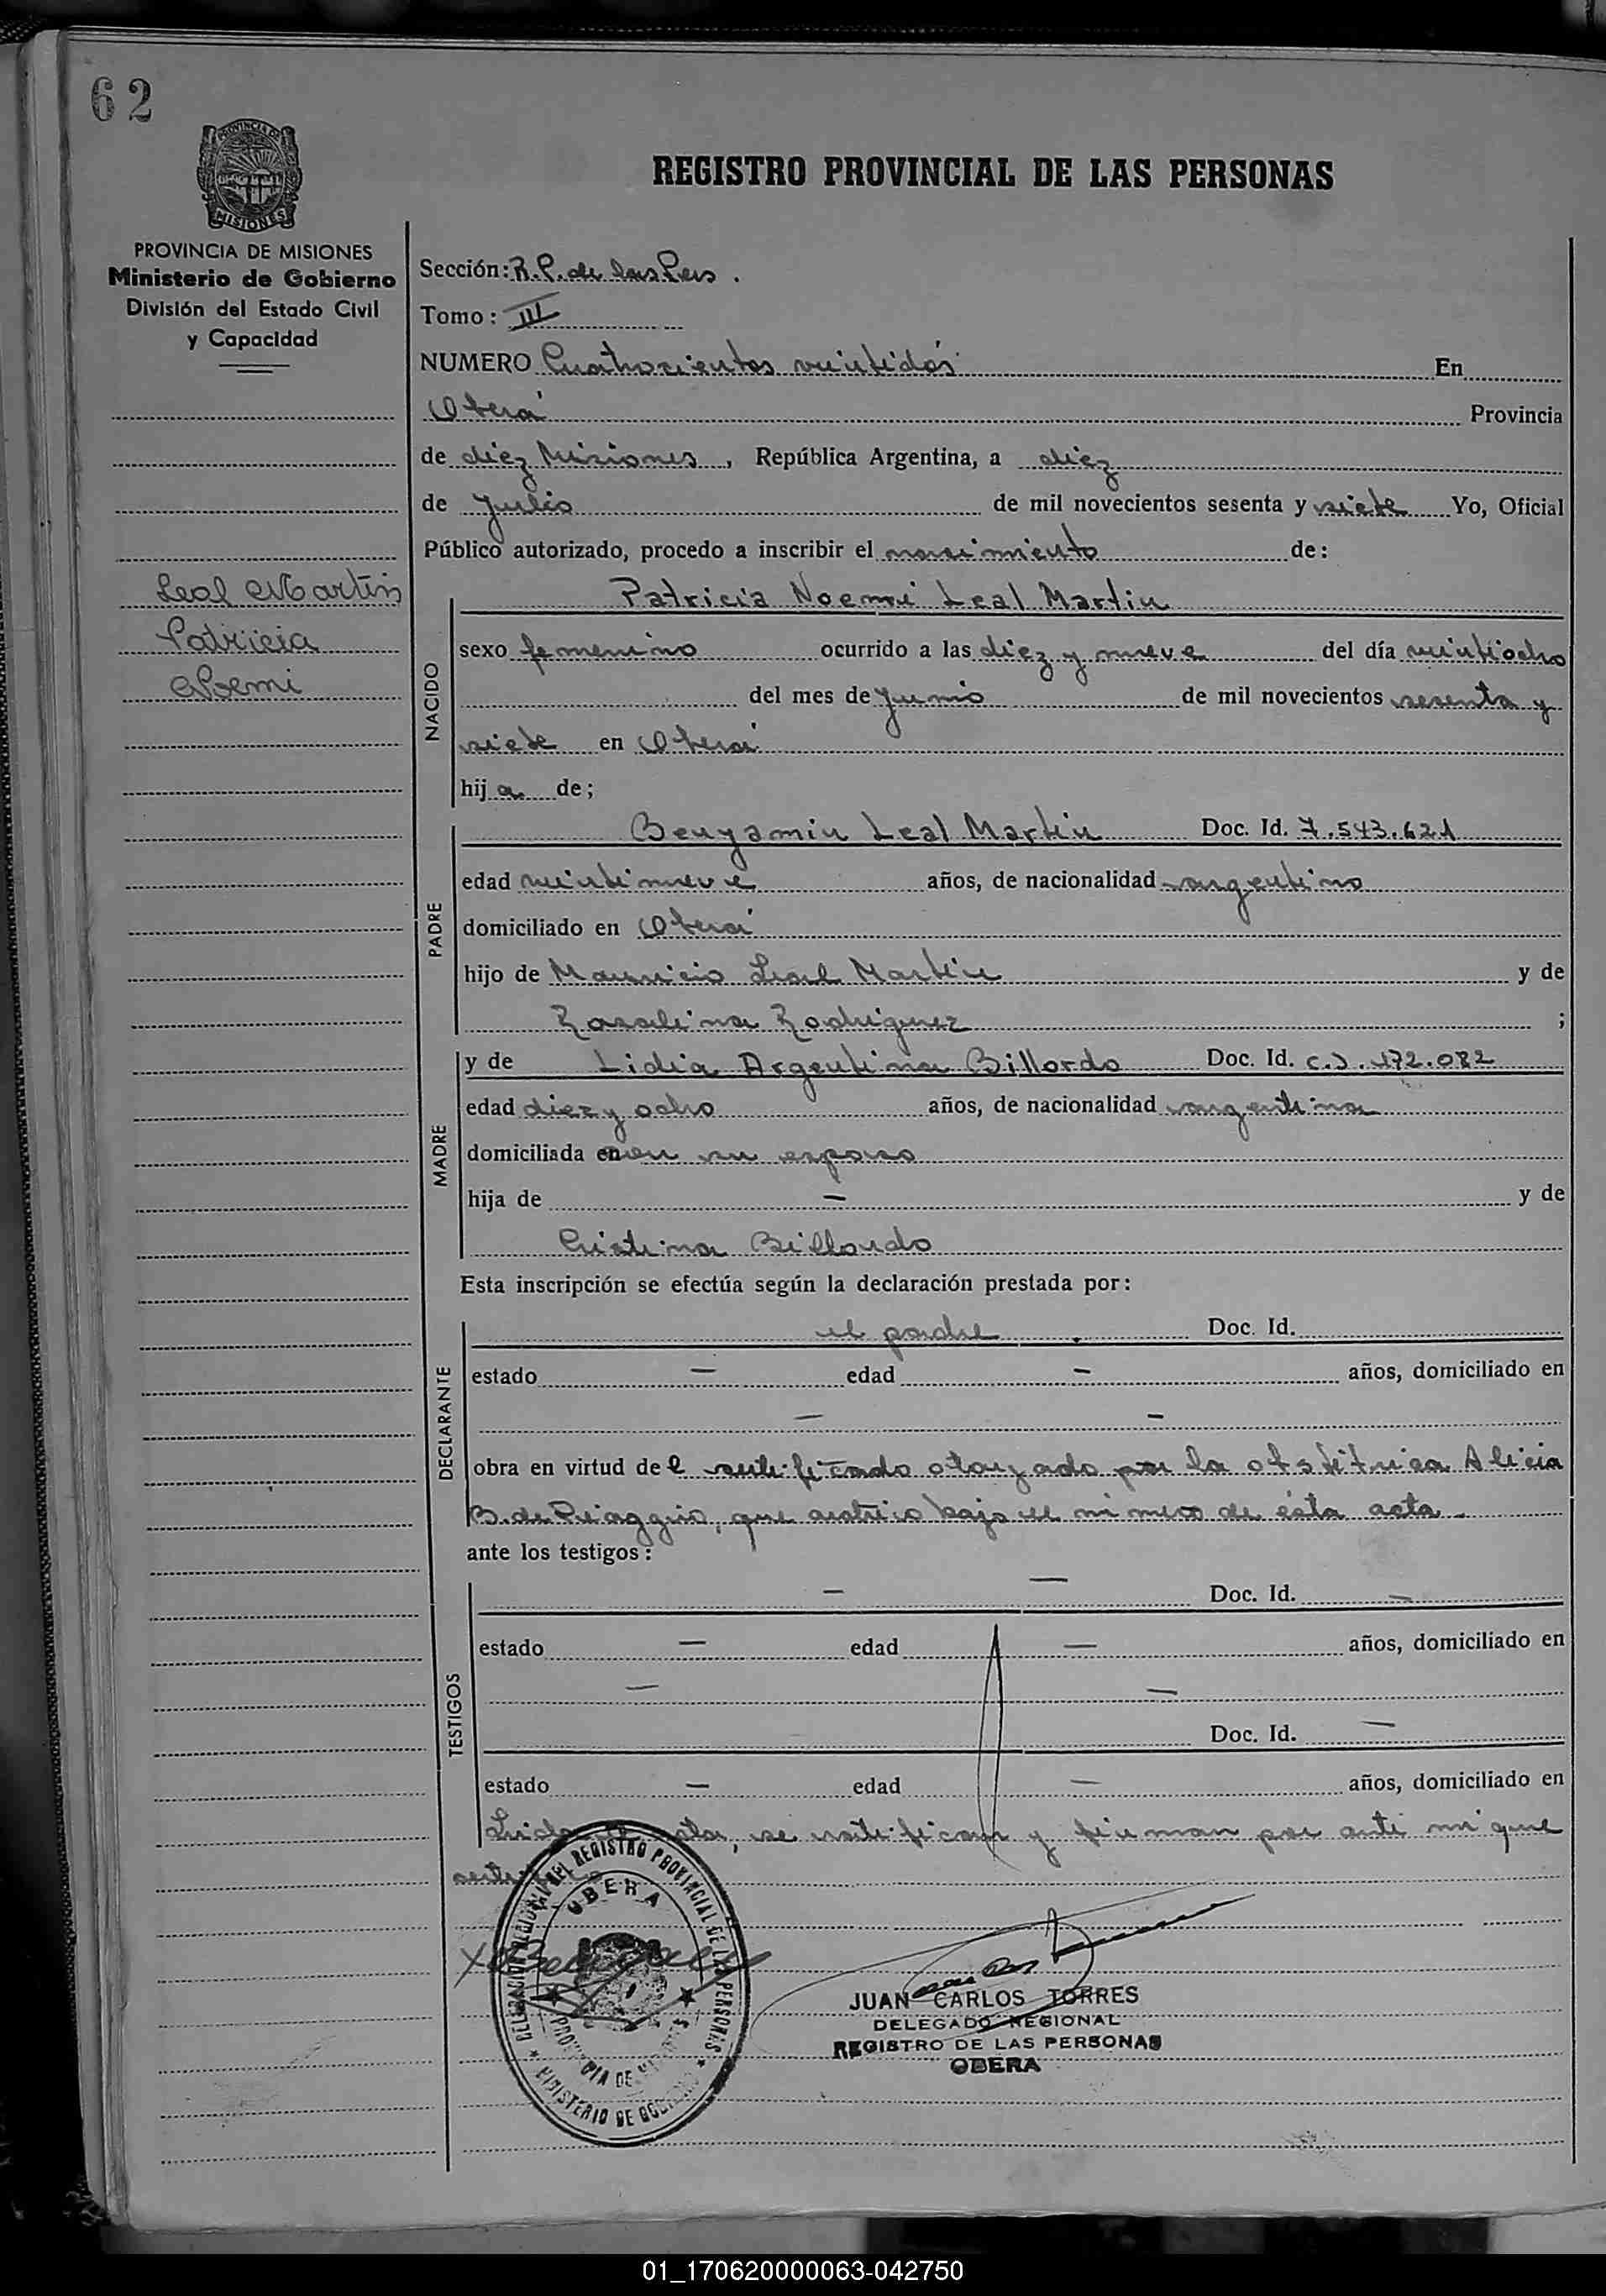 62
PROVINCIA DE
MISIONES
REGISTRO PROVINCIAL DE LAS PERSONAS
PROVINCIA DE MISIONES
Ministerio de Gobierno
División del Estado Civil
y Capacidad
Leal Martin
Patricia
Noemi
Sección: R.P. de las Pers.
Tomo: III
NUMERO Cuatrocientos veintidós En
Oberá Provincia
de diez Misiones, República Argentina, a diez
de Julio de mil novecientos sesenta y siete Yo, Oficial
Público autorizado, procedo a inscribir el nacimiento de:
NACIDO
Patricia Noemí Leal Martin
sexo femenino ocurrido a las diez y nueve del día veintiocho
del mes de Junio de mil novecientos sesenta y
siete en Oberá
hija de;
PADRE
Benyamin Leal Martin Doc. Id. 7.543.621
edad veintinueve años, de nacionalidad argentino
domiciliado en Oberá
hijo de Mauricio Leal Martin y de
Rosalina Rodriguez ;
MADRE
y de Lidia Argentina Billordo Doc. Id. C.I. 172.082
edad diez y ocho años, de nacionalidad argentina
domiciliada en su esposo
hija de — y de
Cristina Billordo
Esta inscripción se efectúa según la declaración prestada por:
DECLARANTE
el padre . Doc. Id.
estado — edad — años, domiciliado en
— —
obra en virtud del certificado otorgado por la obstétrica Alicia
B. de Piaggio, que archivo bajo el número de ésta acta.
ante los testigos:
TESTIGOS
— — Doc. Id. —
estado — edad — años, domiciliado en
— —
Doc. Id. —
estado — edad — años, domiciliado en
Leida acta, se ratifican y firman por ante mi que
DELEGACION REGIONAL DEL REGISTRO PROVINCIAL DE LAS PERSONAS
OBERA
PROVINCIA DE MISIONES
MINISTERIO DE GOBIERNO
JUAN CARLOS TORRES
DELEGADO REGIONAL
REGISTRO DE LAS PERSONAS
OBERA
01_170620000063-042750